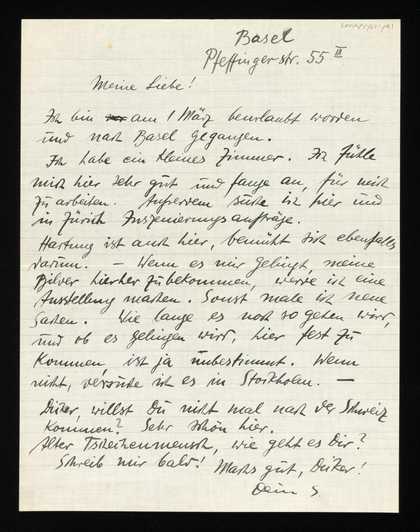 Basel
Pfeffinger-str. 55 II
Meine Liebe!
Ich bin am 1 März beurlaubt worden
und nach Basel gegangen.
Ich habe ein kleines Zimmer. Ich fühle
mich hier sehr gut und fange an, für mich
zu arbeiten. Ausserdem suche ich hier und
in Zürich Inszenierungsaufträge.
Hartung ist auch hier, bemüht sich ebenfalls
darum. — Wenn es mir gelingt, meine
Bilder hierher zu bekommen, werde ich eine
Ausstellung machen. Sonst male ich neue
Sachen. Wie lange es noch so gehen wird,
und ob es gelingen wird, hier fest zu
kommen, ist ja unbestimmt. Wenn
nicht, versuche ich es in Stockholm. —
willst Du nicht mal nach der Schweiz
kommen? Sehr schön hier.
Alter wie geht es Dir?
Schreib mir bald! Machs gut,
Dein S